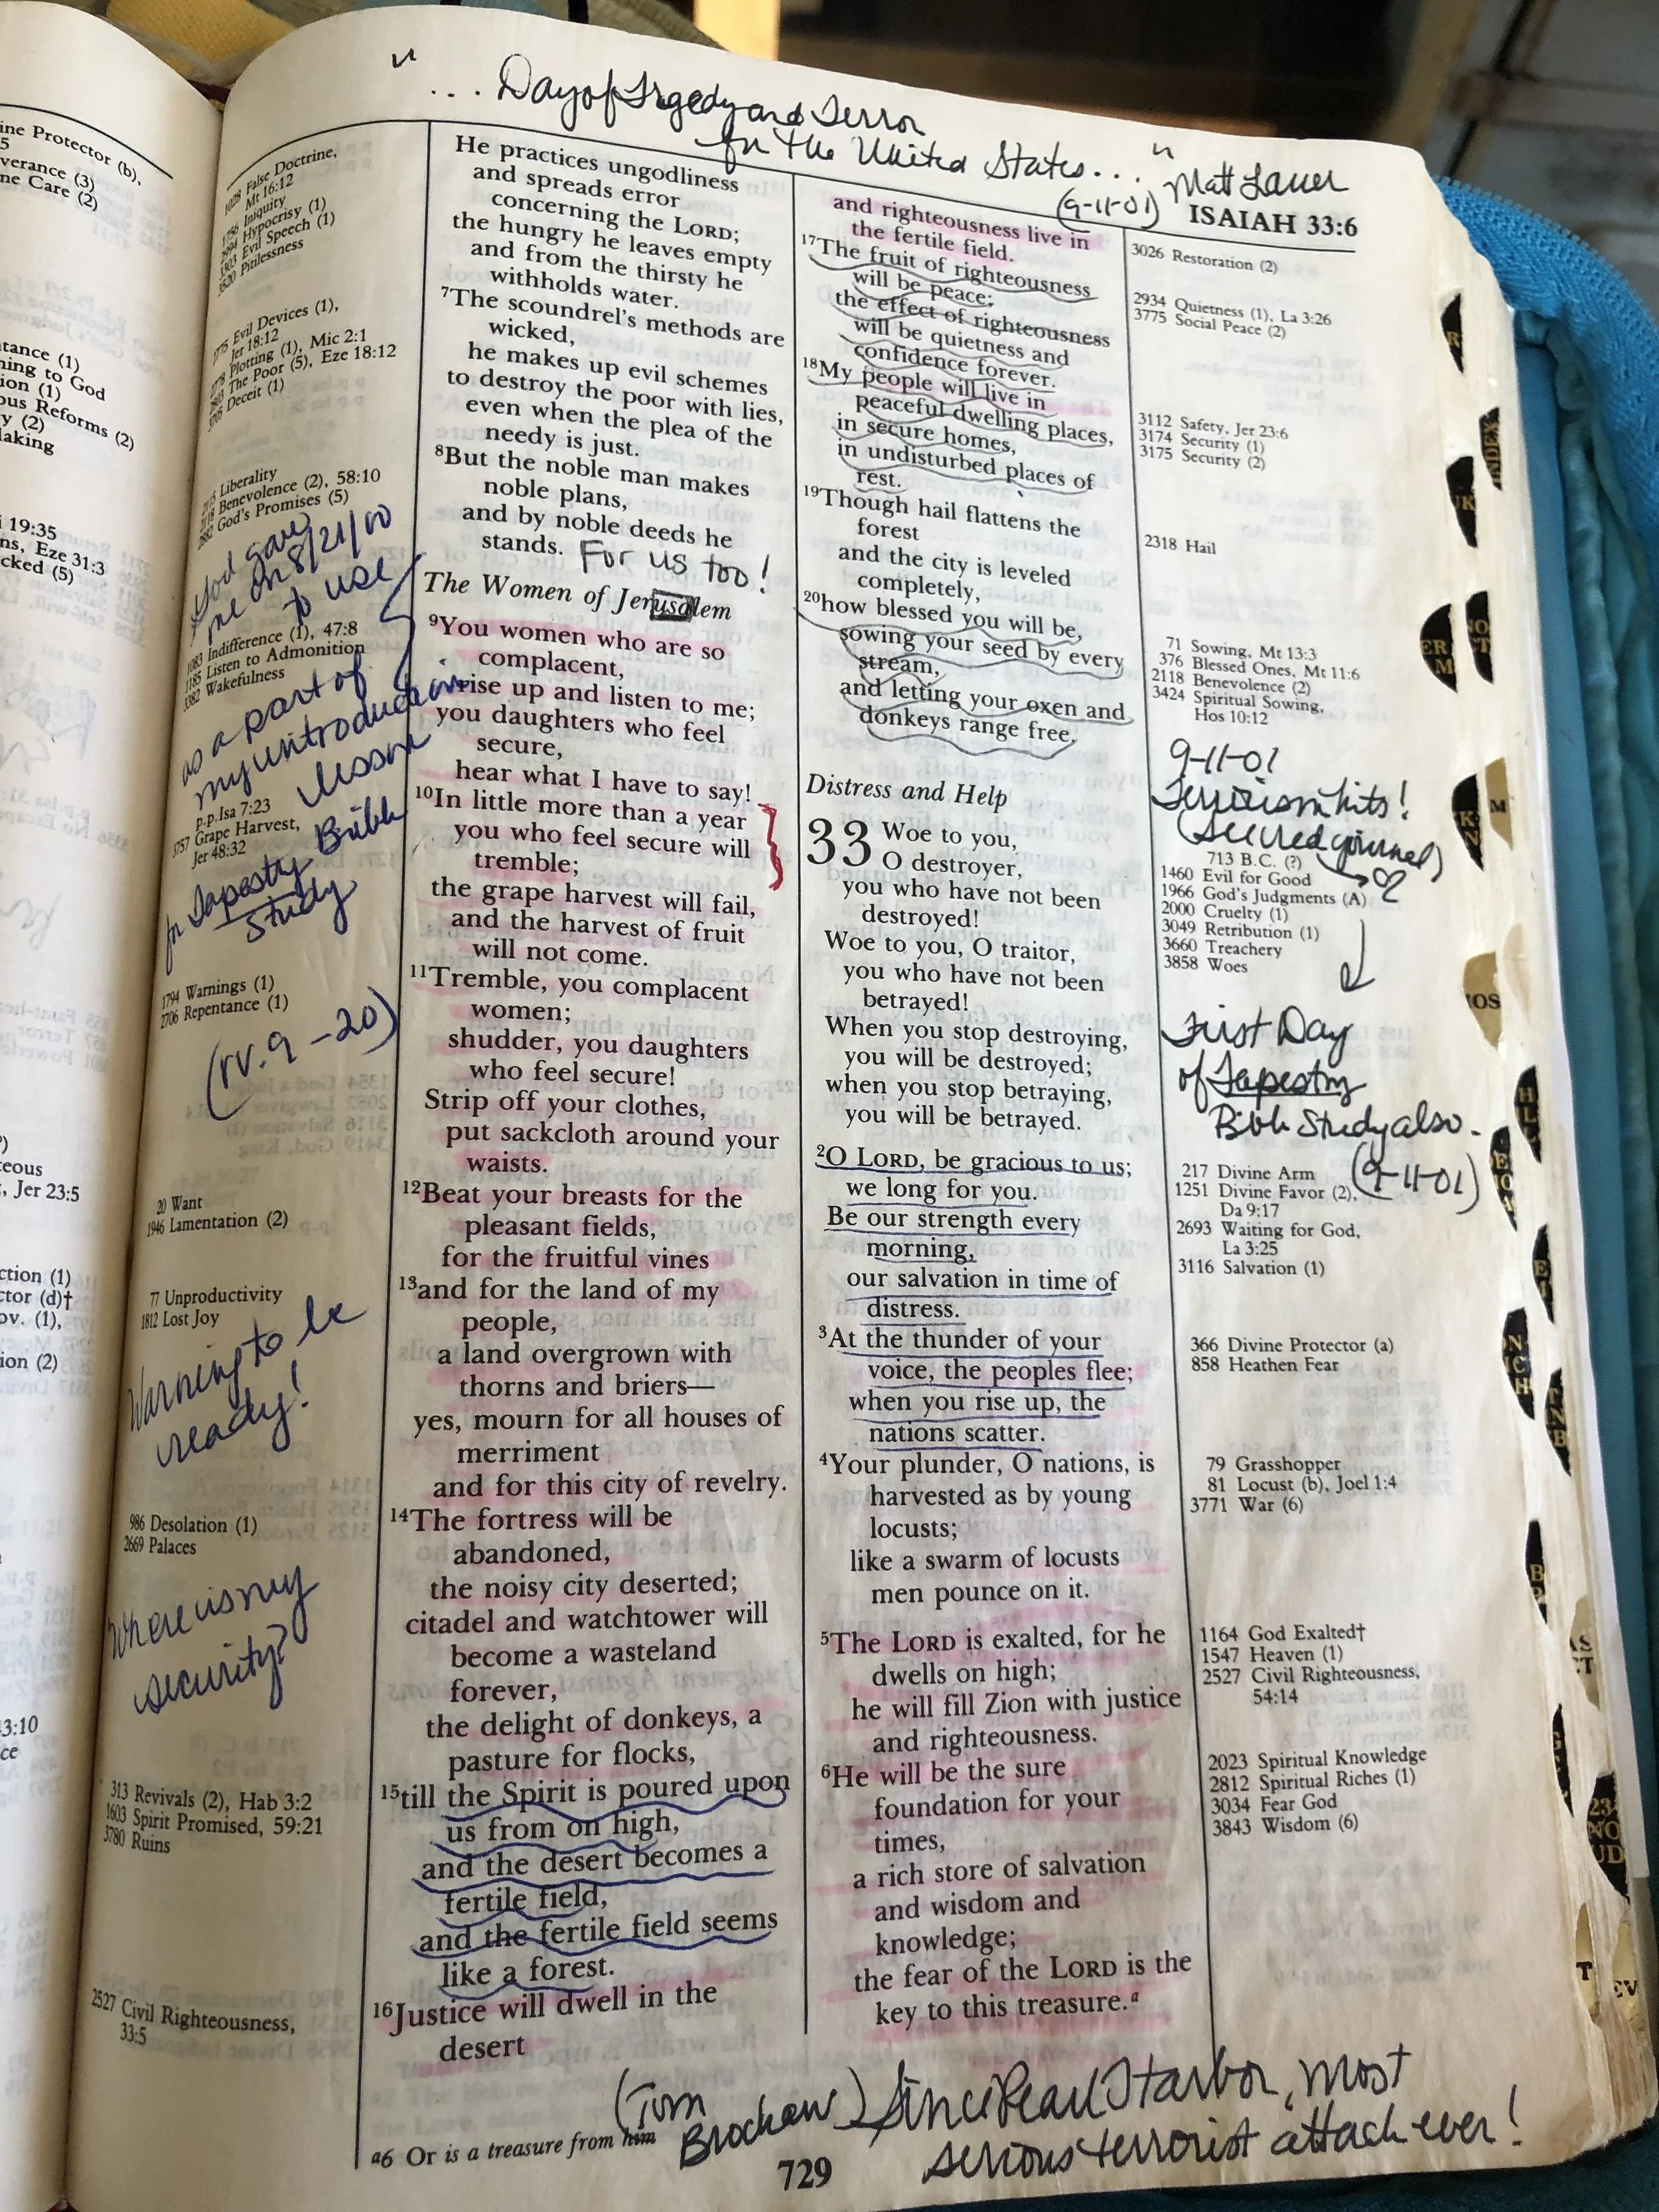 " ... Day of Trgedy and Terror
for the United States... " Matt Lauer
(9-11-01)
ISAIAH 33:6
ine Protector (b),
5
verance (3)
ne Care (2)
tance (1)
ning to God
ion (1)
ous Reforms (2)
y (2)
laking
i 19:35
ns, Eze 31:3
cked (5)
eous
, Jer 23:5
ction (1)
ctor (d)†
ov. (1),
ion (2)
3:10
ce
1028 False Doctrine,
Mt 16:12
1756 Iniquity
2994 Hypocrisy (1)
3303 Evil Speech (1)
3520 Pitilessness
1775 Evil Devices (1),
Jer 18:12
1778 Plotting (1), Mic 2:1
The Poor (5), Eze 18:12
Deceit (1)
Liberality
Benevolence (2), 58:10
God's Promises (5)
God gave
me on 8/21/00
to use
1083 Indifference (1), 47:8
1185 Listen to Admonition
3382 Wakefulness
as a part of
my introduction
lesson
p.p.Isa 7:23
3757 Grape Harvest,
Jer 48:32
for Tapestry Bible
Study
1794 Warnings (1)
2706 Repentance (1)
(vv. 9-20)
20 Want
1946 Lamentation (2)
77 Unproductivity
1812 Lost Joy
Warning to be
ready!
986 Desolation (1)
2669 Palaces
Where is my
security?
313 Revivals (2), Hab 3:2
1603 Spirit Promised, 59:21
3780 Ruins
2527 Civil Righteousness,
33:5
He practices ungodliness
and spreads error
concerning the LORD;
the hungry he leaves empty
and from the thirsty he
withholds water.
7The scoundrel's methods are
wicked,
he makes up evil schemes
to destroy the poor with lies,
even when the plea of the
needy is just.
8But the noble man makes
noble plans,
and by noble deeds he
stands. For us too!
The Women of Jerusalem
9You women who are so
complacent,
rise up and listen to me;
you daughters who feel
secure,
hear what I have to say!
10In little more than a year
you who feel secure will
tremble;
the grape harvest will fail,
and the harvest of fruit
will not come.
11Tremble, you complacent
women;
shudder, you daughters
who feel secure!
Strip off your clothes,
put sackcloth around your
waists.
12Beat your breasts for the
pleasant fields,
for the fruitful vines
13and for the land of my
people,
a land overgrown with
thorns and briers—
yes, mourn for all houses of
merriment
and for this city of revelry.
14The fortress will be
abandoned,
the noisy city deserted;
citadel and watchtower will
become a wasteland
forever,
the delight of donkeys, a
pasture for flocks,
15till the Spirit is poured upon
us from on high,
and the desert becomes a
fertile field,
and the fertile field seems
like a forest.
16Justice will dwell in the
desert
and righteousness live in
the fertile field.
17The fruit of righteousness
will be peace;
the effect of righteousness
will be quietness and
confidence forever.
18My people will live in
peaceful dwelling places,
in secure homes,
in undisturbed places of
rest.
19Though hail flattens the
forest
and the city is leveled
completely,
20how blessed you will be,
sowing your seed by every
stream,
and letting your oxen and
donkeys range free.
Distress and Help
33 Woe to you,
O destroyer,
you who have not been
destroyed!
Woe to you, O traitor,
you who have not been
betrayed!
When you stop destroying,
you will be destroyed;
when you stop betraying,
you will be betrayed.
2O LORD, be gracious to us;
we long for you.
Be our strength every
morning,
our salvation in time of
distress.
3At the thunder of your
voice, the peoples flee;
when you rise up, the
nations scatter.
4Your plunder, O nations, is
harvested as by young
locusts;
like a swarm of locusts
men pounce on it.
5The LORD is exalted, for he
dwells on high;
he will fill Zion with justice
and righteousness.
6He will be the sure
foundation for your
times,
a rich store of salvation
and wisdom and
knowledge;
the fear of the LORD is the
key to this treasure.a
3026 Restoration (2)
2934 Quietness (1), La 3:26
3775 Social Peace (2)
3112 Safety, Jer 23:6
3174 Security (1)
3175 Security (2)
2318 Hail
71 Sowing, Mt 13:3
376 Blessed Ones, Mt 11:6
2118 Benevolence (2)
3424 Spiritual Sowing,
Hos 10:12
9-11-01
Terrorism hits!
713 B.C. (?)
1460 Evil for Good
1966 God's Judgments (A)
2000 Cruelty (1)
3049 Retribution (1)
3660 Treachery
3858 Woes
First Day
of Tapestry
Bible Study also.
(9-11-01)
217 Divine Arm
1251 Divine Favor (2),
Da 9:17
2693 Waiting for God,
La 3:25
3116 Salvation (1)
366 Divine Protector (a)
858 Heathen Fear
79 Grasshopper
81 Locust (b), Joel 1:4
3771 War (6)
1164 God Exalted†
1547 Heaven (1)
2527 Civil Righteousness,
54:14
2023 Spiritual Knowledge
2812 Spiritual Riches (1)
3034 Fear God
3843 Wisdom (6)
a6 Or is a treasure from him
(Tom
Brochaw) Since Pearl Harbor, most
serious terrorist attack ever!
729